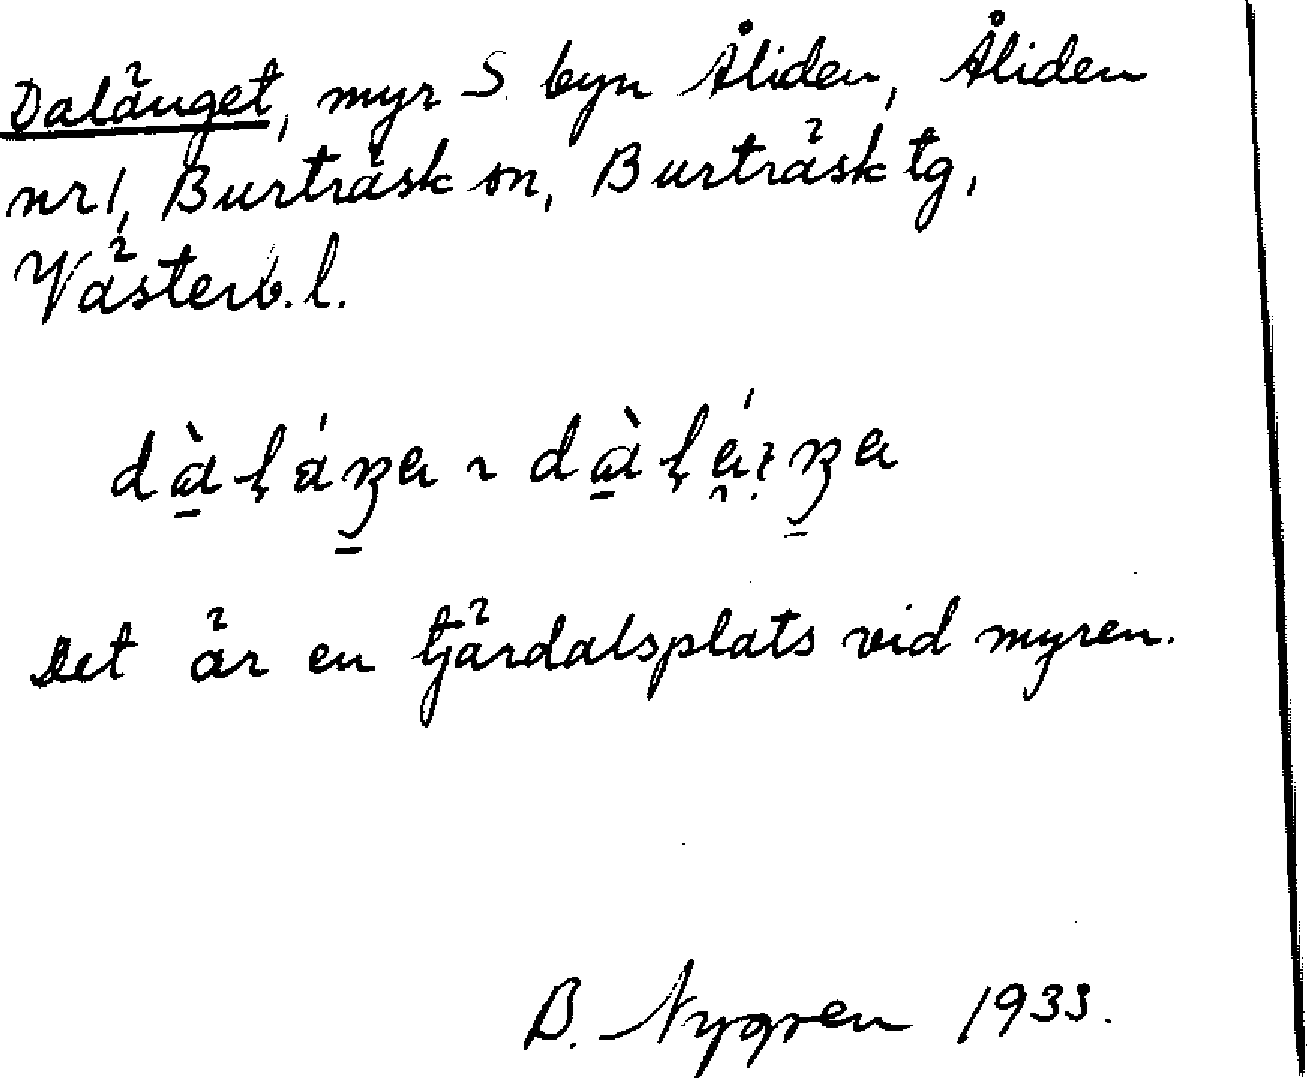 Dalänget, myr S. byn Åliden, Åliden
nr 1, Burträsk sn, Burträsk tg,
Västerb. l.
Det är en tjärdalsplats vid myren.
B. Nygren 1933.